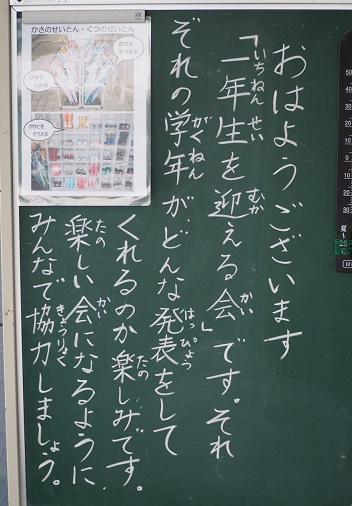 おはようございます
「一年生を迎える会」です。それ
いちねんせい むか かい
ぞれの学年が、どんな発表をして
がくねん はっぴょう
くれるのか楽しみです。
たの
楽しい会になるように、
たの かい
みんなで協力しましょう。
きょうりょく
かさのせいとん・くつのせいとん
かかとを
そろえる